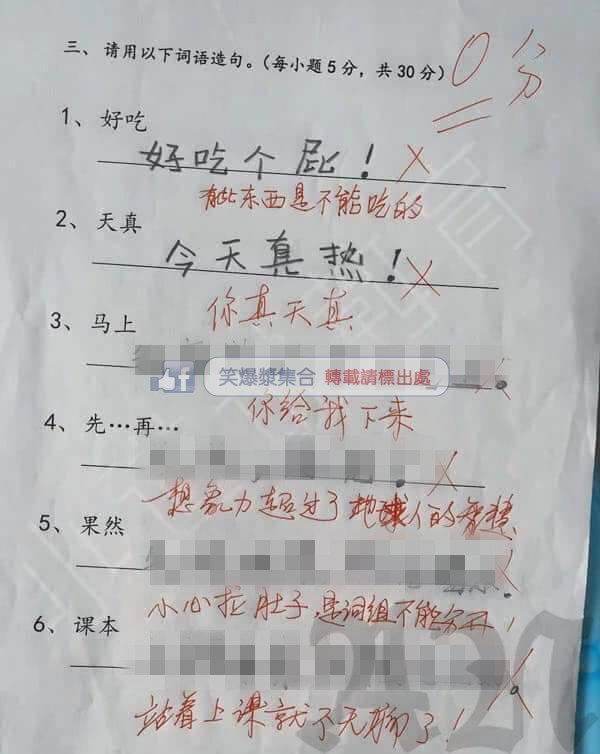 三、请用以下词语造句。(每小题5分，共30分)
0分
1、好吃
好吃个屁！
有些东西是不能吃的
2、天真
今天真热！
你真天真
3、马上
笑爆漿集合 轉載請標出處
你给我下来
4、先…再…
想象力超过了地球人的智慧
5、果然
小心拉肚子，是词组不能分开！
6、课本
站着上课就不无聊了！